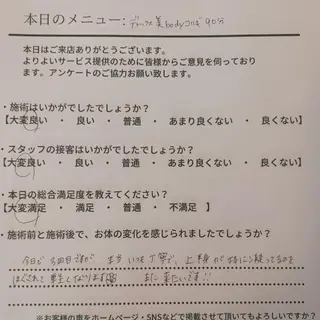 本日のメニュー: デラックス美bodyコルギ90分
本日はご来店ありがとうございます。
よりよいサービス提供のために皆様からご意見を伺っております。
アンケートのご協力お願い致します。
・施術はいかがでしたでしょうか?
【大変良い ・ 良い ・ 普通 ・ あまり良くない ・ 良くない】
・スタッフの接客はいかがでしたでしょうか?
【大変良い ・ 良い ・ 普通 ・ あまり良くない ・ 良くない】
・本日の総合満足度を教えてください?
【大変満足 ・ 満足 ・ 普通 ・ 不満足 】
・施術前と施術後で、お体の変化を感じられましたでしょうか?
今日で 回目ですが いつも丁寧で、上半身が特にこってるのを
ほぐされて また来たいです!!
※お客様の声をホームページ・SNSなどで掲載させて頂いてもよろしいですか?